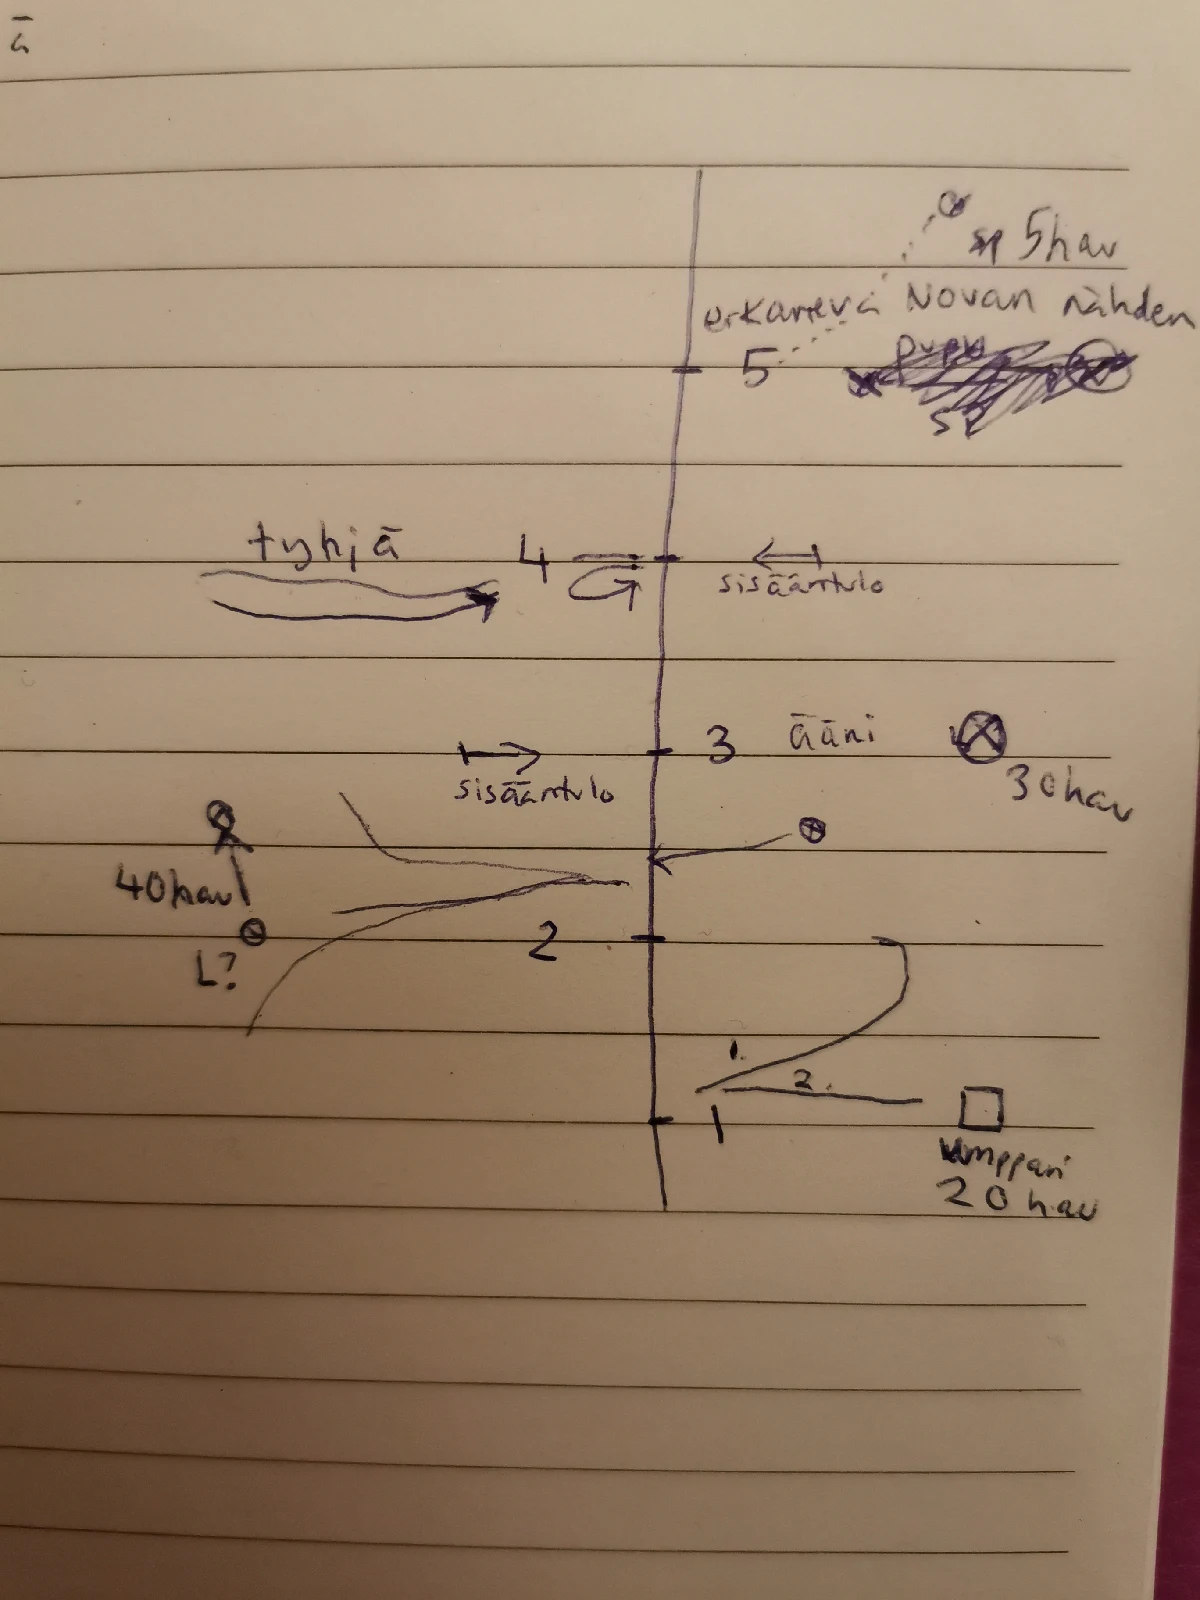 ä
sp 5hav
erkaneva Novan nähden
5 pupu
sp
tyhjä 4
sisääntulo
3 ääni
30hav
sisääntulo
40hav
2
L?
1.
2.
1
kumppari
20hav